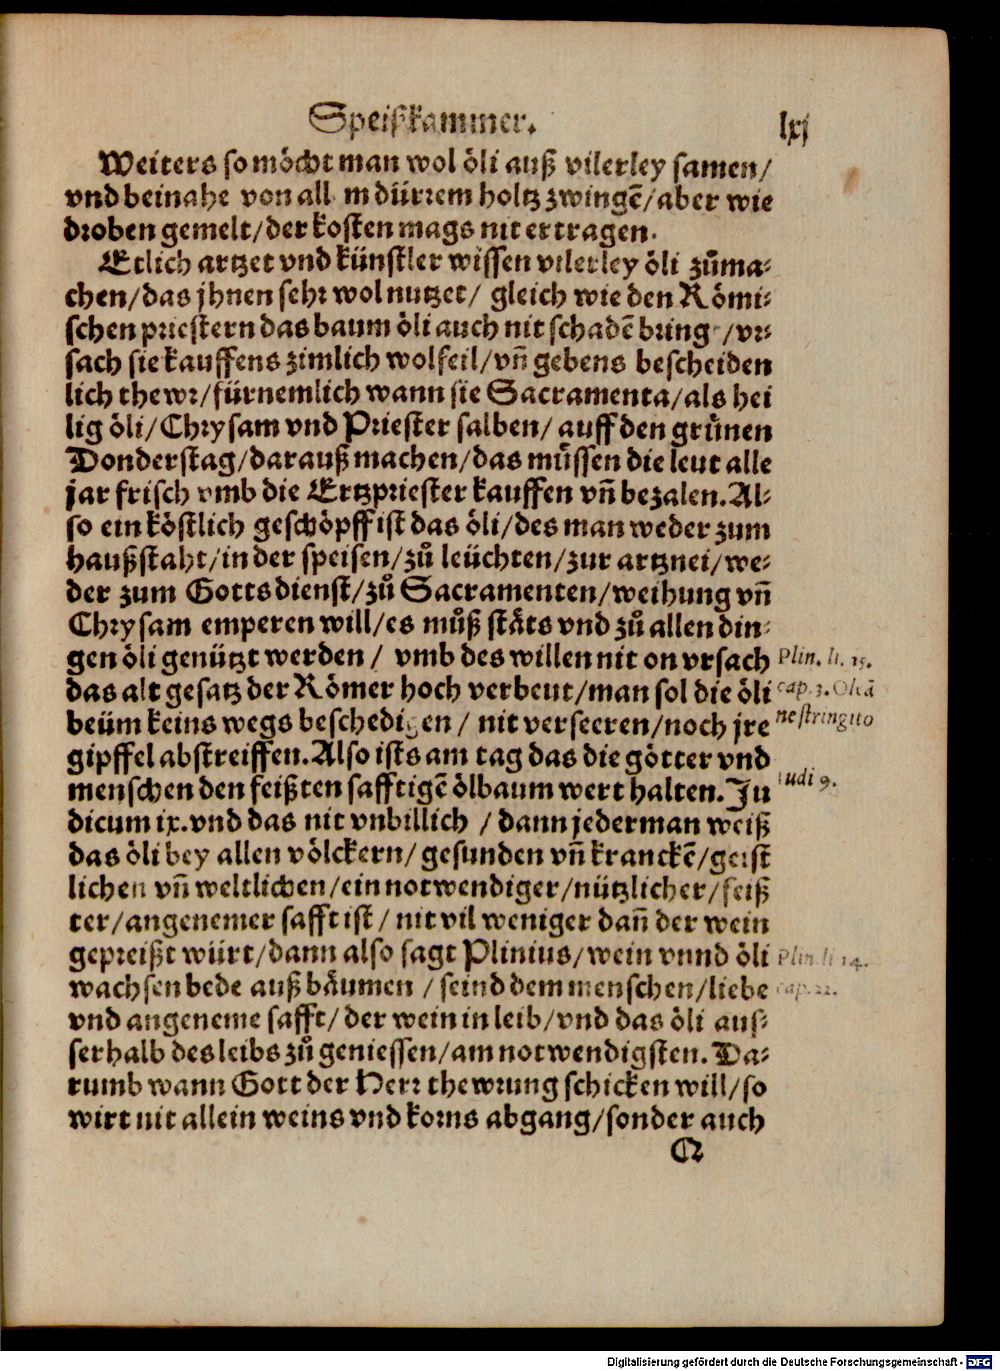 Speißkammer.
lxj
Weiters so möcht man wol öli auß vilerley samen/
vnd beinahe von all m dürrem holtz zwingẽ/aber wie
droben gemelt/der kosten mags nit ertragen.
Etlich artzet vnd künstler wissen vilerley öli zůma⸗
chen/das jhnen sehr wol nutzet/ gleich wie den Römi⸗
schen priestern das baum öli auch nit schadẽ bring /vr⸗
sach sie kauffens zimlich wolfeil/vñ gebens bescheiden
lich thewr/fürnemlich wann sie Sacramenta/als hei
lig öli/Chrysam vnd Priester salben/ auff den grünen
Donderstag/darauß machen/das müssen die leut alle
jar frisch vmb die Ertzpriester kauffen vñ bezalen.Al⸗
so ein köstlich geschöpff ist das öli/des man weder zum
haußstaht/in der speisen/zů leüchten/zur artznei/we⸗
der zum Gottsdienst/zů Sacramenten/weihung vñ
Chrysam emperen will/es můß stäts vnd zů allen din⸗
gen öli genützt werden / vmb des willen nit on vrsach
das alt gesatz der Römer hoch verbeut/man sol die öli
beüm keins wegs beschedigen / nit verseeren/noch jre
gipffel abstreiffen.Also ists am tag das die götter vnd
menschen den feißten safftigẽ ölbaum wert halten.Ju
dicum ix.vnd das nit vnbillich / dann jederman weiß
das öli bey allen völckern/ gesunden vñ kranckẽ/geist
lichen vñ weltlichen/ein notwendiger/nützlicher/feiß
ter/angenemer safft ist / nit vil weniger dañ der wein
gepreißt würt/dann also sagt Plinius/wein vnnd öli
wachsen bede auß bäumen / seind dem menschen/liebe
vnd angeneme safft/ der wein in leib/vnd das öli aus⸗
serhalb des leibs zů geniessen/am notwendigsten. Da⸗
rumb wann Gott der Herr thewrung schicken will/so
wirt nit allein weins vnd korns abgang/sonder auch
Q
Plin. li. 15.
cap. 3. Oleã
ne stringito
Judi 9.
Plin. li 14.
cap. 22.
Digitalisierung gefördert durch die Deutsche Forschungsgemeinschaft - DFG